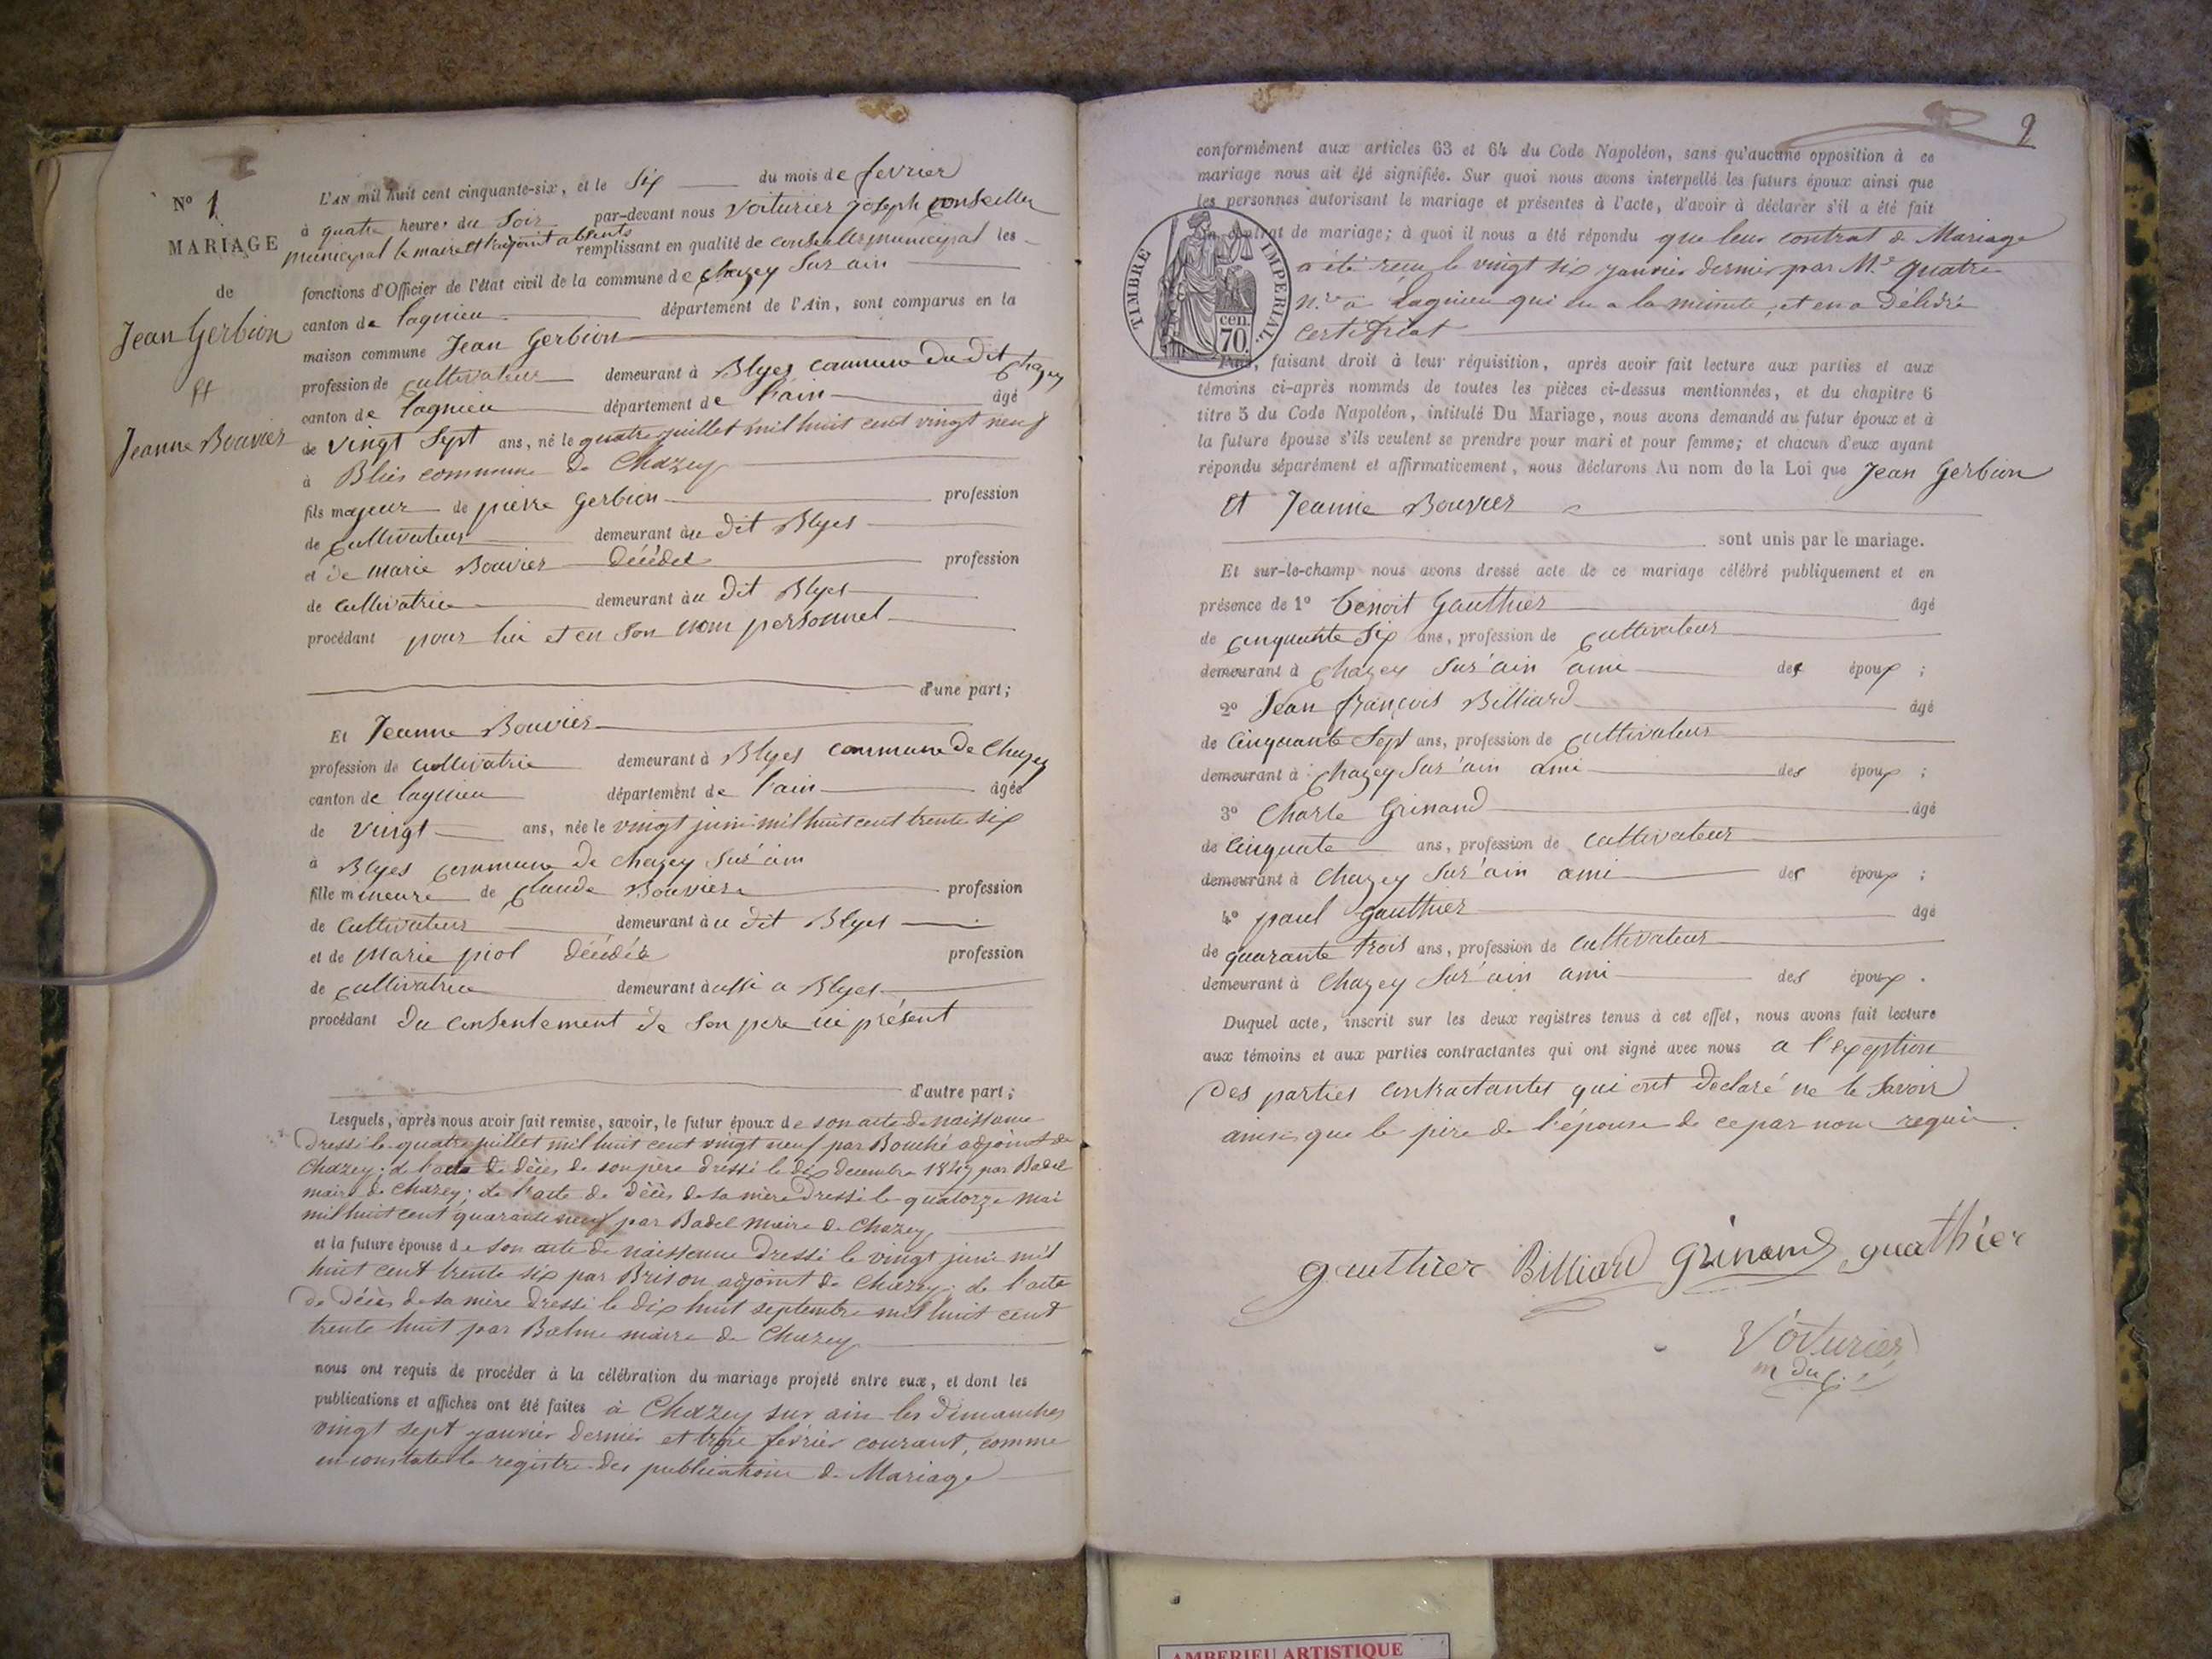 N° 1
MARIAGE
de
Jean Gerbion
et
Jeanne Bouvier
L'AN mil huit cent cinquante-six, et le Six du mois de fevrier
à quatre heures du Soir par-devant nous Voiturier joseph Conseiller
municipal le maire et l'adjoint absents remplissant en qualité de conseiller municipal les
fonctions d'Officier de l'état civil de la commune de Chazey Sur ain
canton de lagnieu département de l'Ain, sont comparus en la
maison commune Jean Gerbion
profession de Cultivateur demeurant à Blyes commune du dit Chazey
canton de lagnieu département de l'ain âgé
de vingt Sept ans, né le quatre juillet mil huit cent vingt neuf
à Blies commune de Chazey
fils majeur de pierre Gerbion profession
de Cultivateur demeurant au dit Blyes
et de marie Bouvier décédés profession
de Cultivatrice demeurant au dit Blyes
procédant pour lui et en Son nom personnel
d'une part;
Et Jeanne Bouvier
profession de Cultivatrice demeurant à Blyes commune de Chazey
canton de lagnieu département de l'ain âgée
de vingt ans, née le vingt juin mil huit cent trente six
à Blyes commune de Chazey Sur ain
fille mineure de Claude Bouvier profession
de Cultivateur demeurant au dit Blyes
et de Marie piol décédée profession
de Cultivatrice demeurant aussi a Blyes
procédant du Consentement de Son pere ici présent
d'autre part;
Lesquels, après nous avoir fait remise, savoir, le futur époux de son acte de naissance
dressé le quatre juillet mil huit cent vingt neuf par Bouché adjoint de
Chazey; de l'acte de décès de son père dressé le dix decembre 1847 par Badel
maire de Chazey; de l'acte de décès de sa mère dressé le quatorze mai
mil huit cent quarante neuf par Badel maire de Chazey
et la future épouse de son acte de naissance dressé le vingt juin mil
huit cent trente six par Brison adjoint de Chazey; de l'acte
de décès de sa mère dressé le dix huit septembre mil huit cent
trente huit par Balme maire de Chazey
nous ont requis de procéder à la célébration du mariage projeté entre eux, et dont les
publications et affiches ont été faites à Chazey sur ain les dimanches
vingt sept janvier dernier et trois fevrier courant, comme
en constate le registre des publications de Mariage
2
conformément aux articles 63 et 64 du Code Napoléon, sans qu'aucune opposition à ce
mariage nous ait été signifiée. Sur quoi nous avons interpellé les futurs époux ainsi que
les personnes autorisant le mariage et présentes à l'acte, d'avoir à déclarer s'il a été fait
un contrat de mariage; à quoi il nous a été répondu que leur contrat de Mariage
a été reçu le vingt six janvier dernier par M.e Quatre
n.re a Lagnieu qui en a la minute, et en a délivré
certificat
TIMBRE IMPERIAL.
cen.
70.
faisant droit à leur réquisition, après avoir fait lecture aux parties et aux
témoins ci-après nommés de toutes les pièces ci-dessus mentionnées, et du chapitre 6
titre 5 du Code Napoléon, intitulé Du Mariage, nous avons demandé au futur époux et à
la future épouse s'ils veulent se prendre pour mari et pour femme; et chacun d'eux ayant
répondu séparément et affirmativement, nous déclarons Au nom de la Loi que Jean Gerbion
et Jeanne Bouvier
sont unis par le mariage.
Et sur-le-champ nous avons dressé acte de ce mariage célébré publiquement et en
présence de 1° benoit Gauthier âgé
de cinquante Six ans, profession de Cultivateur
demeurant à Chazey Sur ain ami des époux ;
2° Jean françois Billiard âgé
de Cinquante Sept ans, profession de Cultivateur
demeurant à Chazey Sur ain ami des époux ;
3° Charle Grinand âgé
de Cinquate ans, profession de Cultivateur
demeurant à Chazey Sur ain ami des époux ;
4° paul Gauthier âgé
de quarante trois ans, profession de Cultivateur
demeurant à Chazey Sur ain ami des époux .
Duquel acte, inscrit sur les deux registres tenus à cet effet, nous avons fait lecture
aux témoins et aux parties contractantes qui ont signé avec nous a l'exeption
des parties Contractantes qui ont declaré ne le Savoir
ainsi que le père de l'épouse de ce par nous requis.
gauthier Billiard Grinand guathier
Voiturier
AMBERIEU ARTISTIQUE